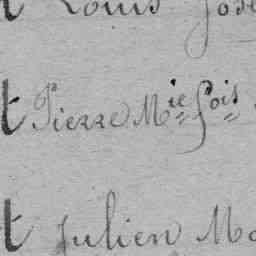 t Louis Jose
t Pierre M.ie f.ois
t Julien Ma